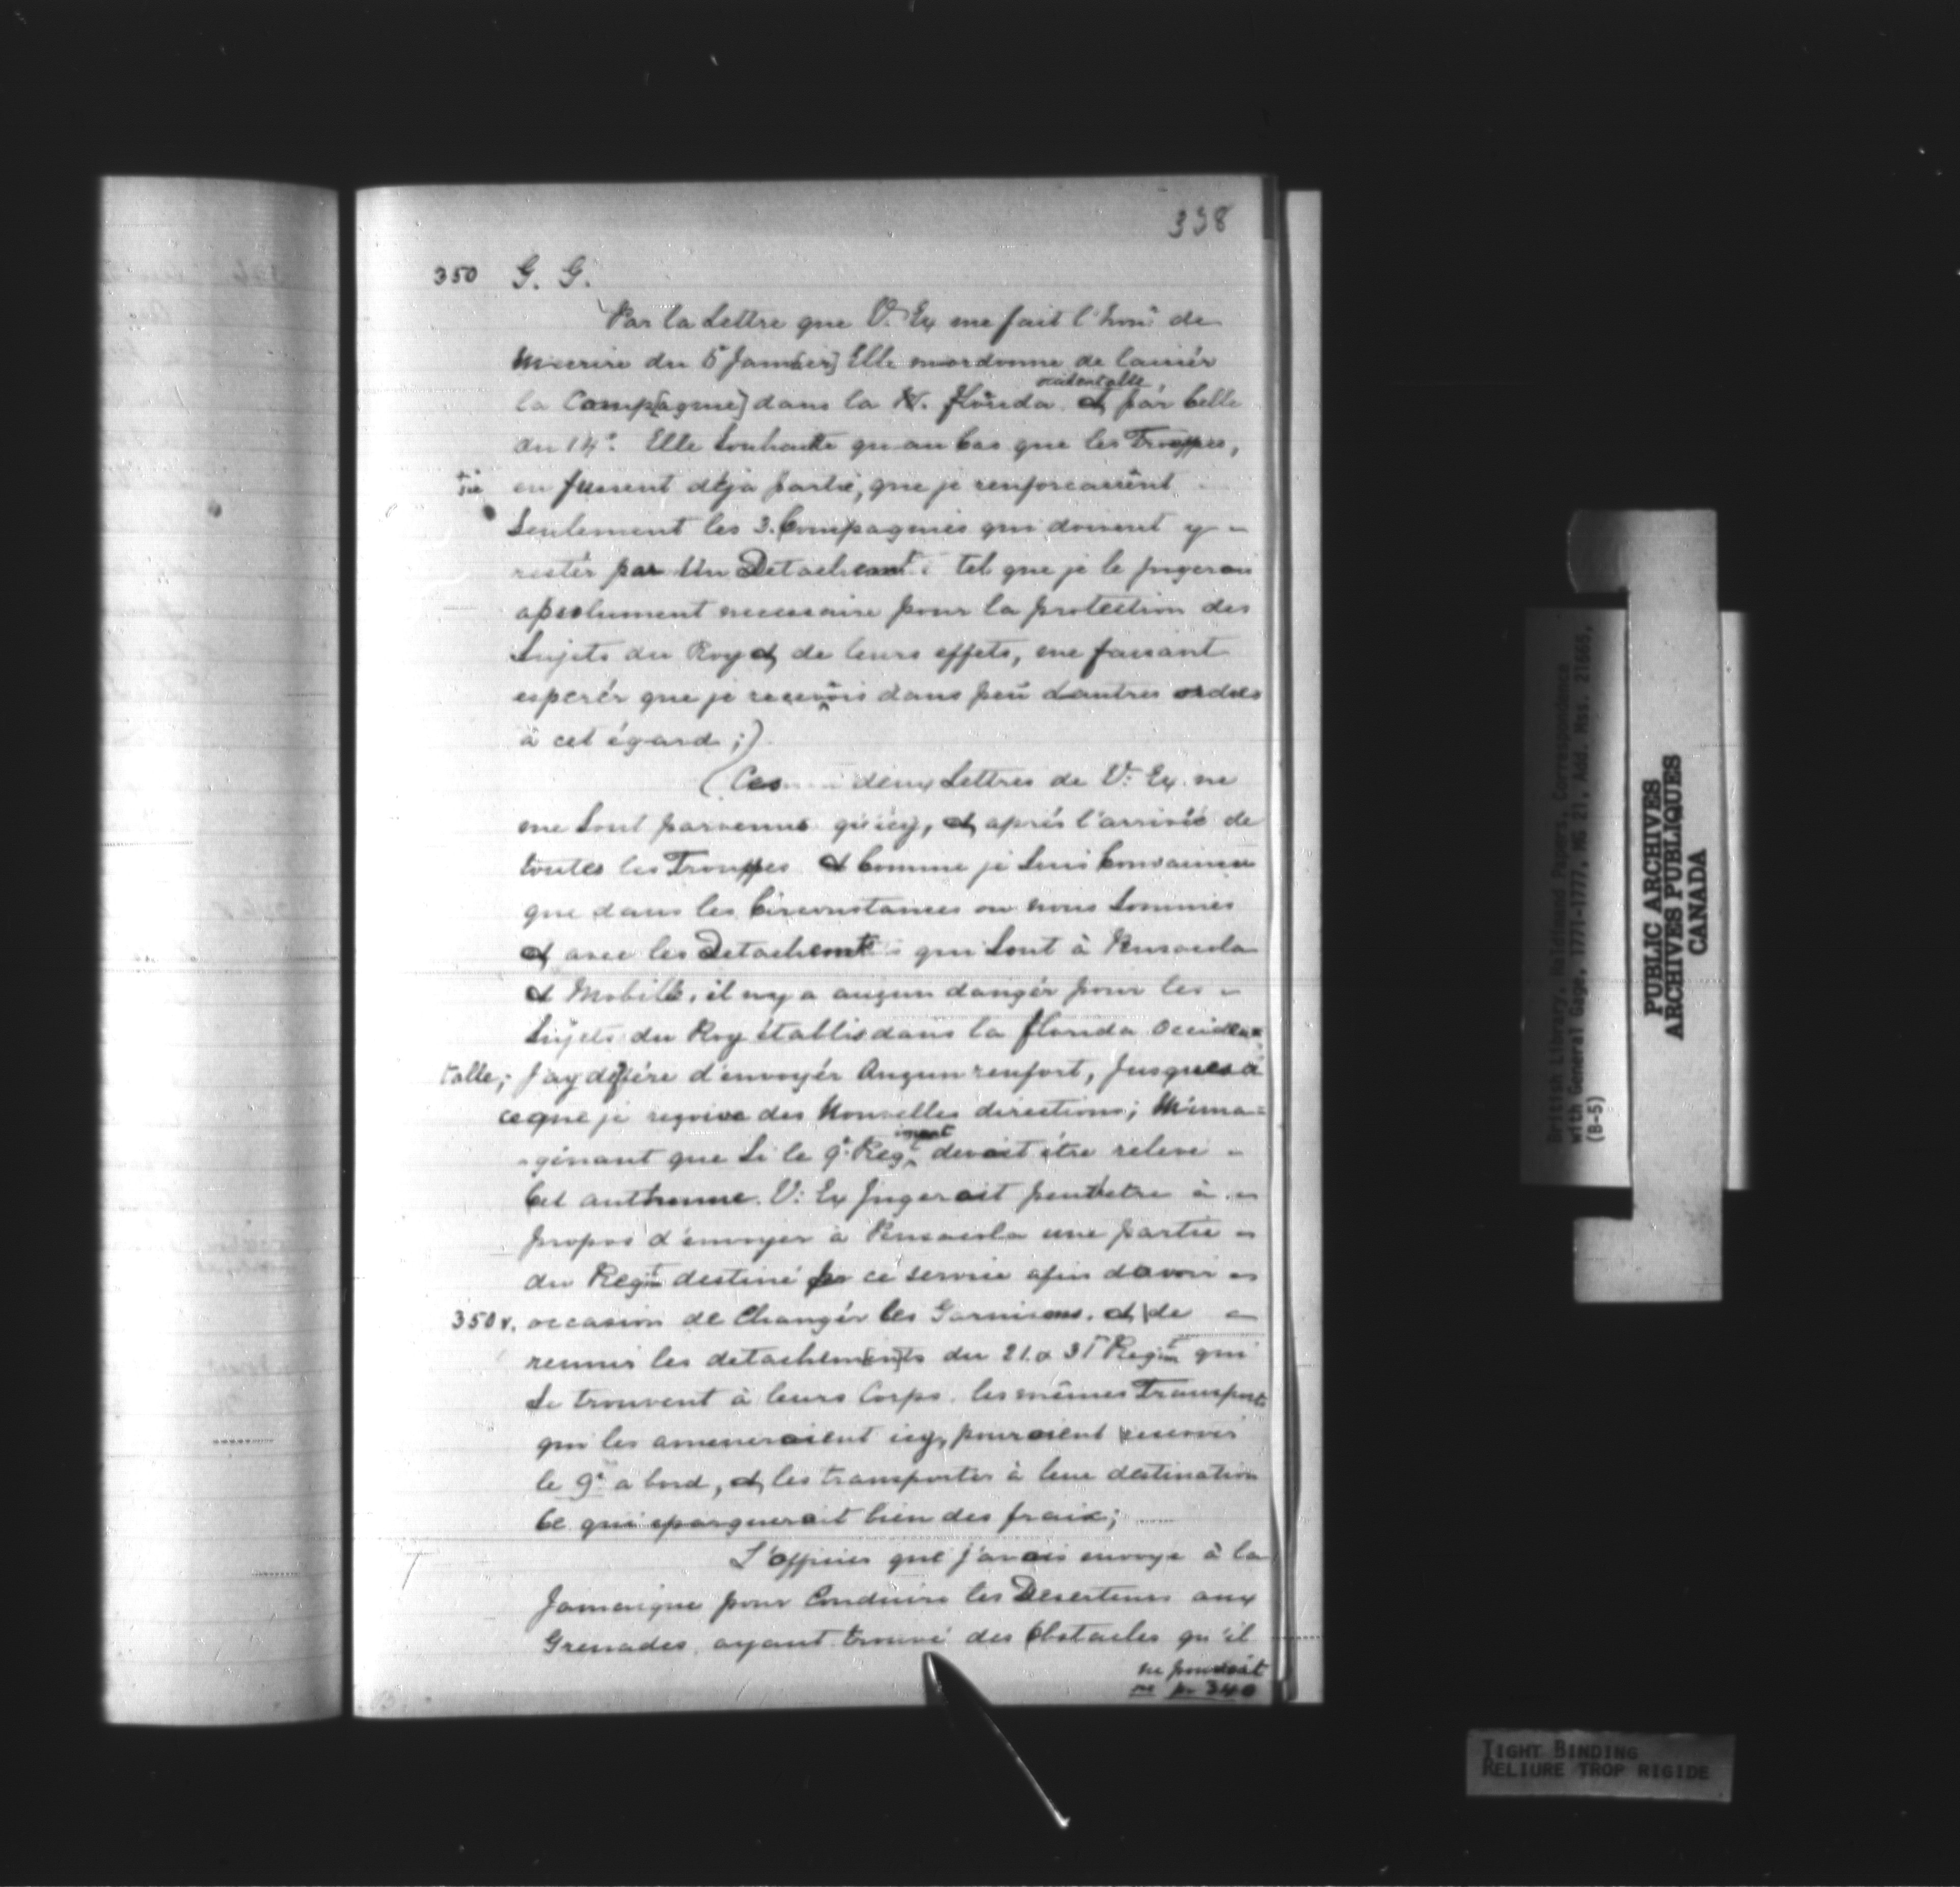 338
350 G. G.
Par la Lettre que V. Ex me fait l'hon̄ de
M'ecrire du 5 Janv[ier] Elle m'ordonne de laissér
la Comp[agnie] dans la W. florida occidentalle, & par Celle
du 14e. Elle Souhaitte qu'au Cas que les Trouppes,
en fussent déja partie, que je renforcassent
Seulement les 3. Compagnies qui doivent y -
restér par Un Detachemt. tel que je le jugerois
apsolument necessaire pour la protection des
Sujets du Roy & de leurs effets, me faisant
esperér que je recevrois dans peu d'autres ordres
à cet égard ;)
(Ces deux Lettres de V: Ex. ne
me Sont parvenus qu'icy, & aprés l'arrivée de
toutes les Trouppes & Comme je Suis Convaincu
que dans les Circonstances ou nous Sommes
& avec les Detachemts qui Sont à Pensacola
& Mobille, il ny a auqun dangér pour les -
Sujets du Roy établis dans la florida Occiden=
talle; J'ay differe d'envoyér Auqun renfort, Jusques a
ceque je reçoive des Nouvelles directions; M'ima=
-ginant que Si le 9e. Regt. devoit être relevé -
Cet authomne. V: Ex Jugeroit peutetre à -
propos d'envoyer à Pensacola une partie -
du Regt destiné pr ce service afin d'avoir -
350v. occasion de Changér les Garnisons. & de -
reunir les detachem[en]ts du 21. & 31 Regt qui
Se trouvent à leurs Corps. les mêmes Transports
qui les ameneroient icy, pouroient recevoir
le 9e a bord, & les transporter à leur destination
Ce qui epargneroit bien des fraix;
L'officier que j'avois envoye à la
Jamaique pour Conduire les Deserteurs aux
Grenades, ayant trouvé des Obstacles qu'il
ne pouvoit
p. 340
British Library, Haldimand Papers, Correspondence
with General Gage, 1771-1777, MG 21, Add. Mss. 21665,
(B-5)
PUBLIC ARCHIVES
ARCHIVES PUBLIQUES
CANADA
TIGHT BINDING
RELIURE TROP RIGIDE